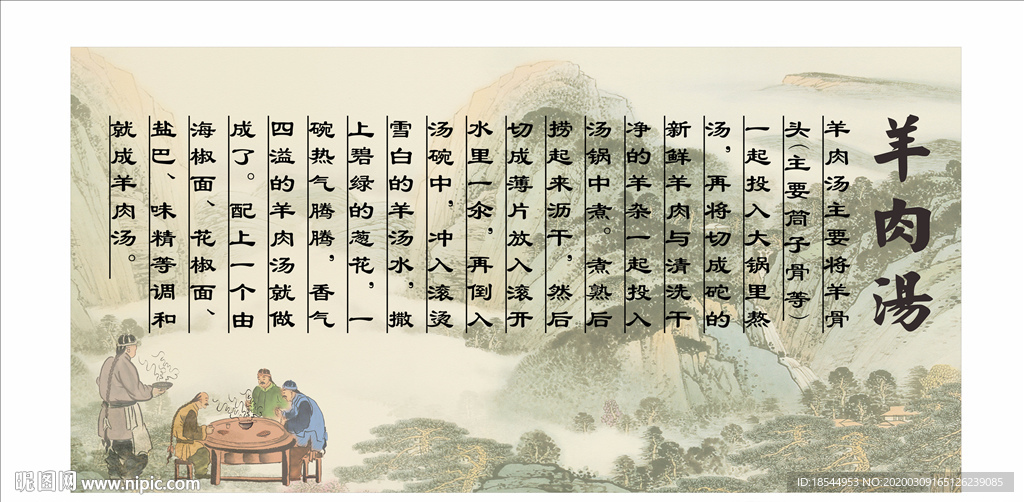 羊肉湯
羊肉汤主要将羊骨
头(主要筒子骨等)
一起投入大锅里熬
汤，再将切成砣的
新鲜羊肉与清洗干
净的羊杂一起投入
汤锅中煮。煮熟后
捞起来沥干，然后
切成薄片放入滚开
水里一氽，再倒入
汤碗中，冲入滚烫
雪白的羊汤水，撒
上碧绿的葱花，一
碗热气腾腾，香气
四溢的羊肉汤就做
成了。配上一个由
海椒面、花椒面、
盐巴、味精等调和
就成羊肉汤。
昵图网 www.nipic.com
ID:18544953 NO:20200309165126239085